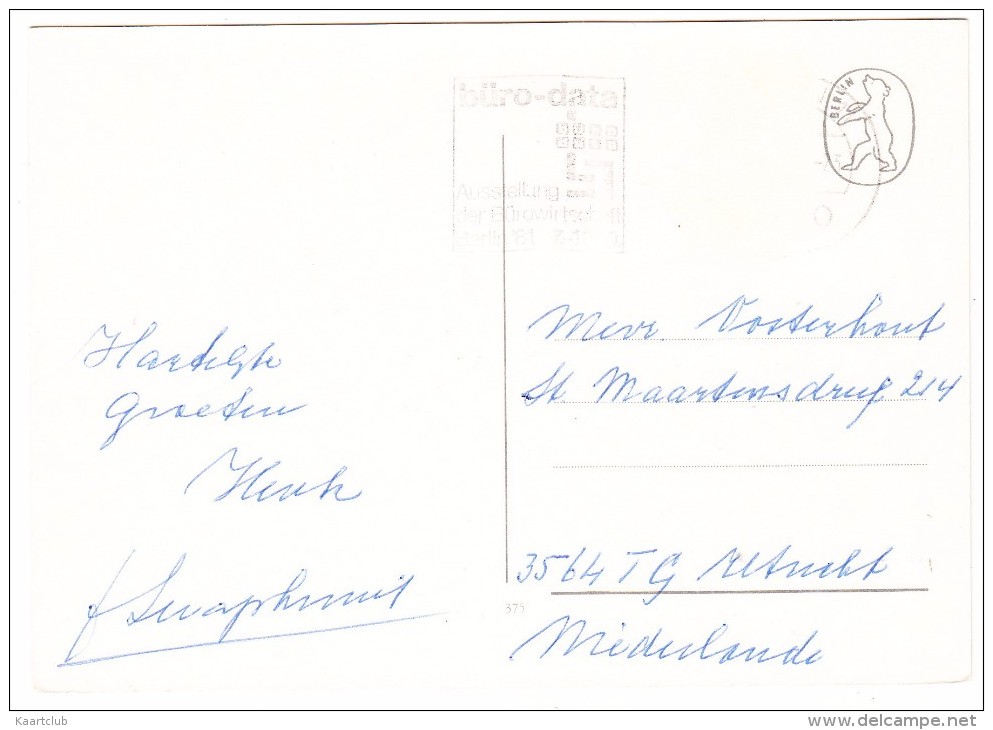 büro-data
Ausstellung
der Bürowirtschaft
Berlin '81
BERLIN
Hartelijke
Groeten
Henk
Mevr. Oosterhout
St. Maartensdreef 214
3564 TG Utrecht
Niederlande
375
Kaartclub
www.delcampe.net